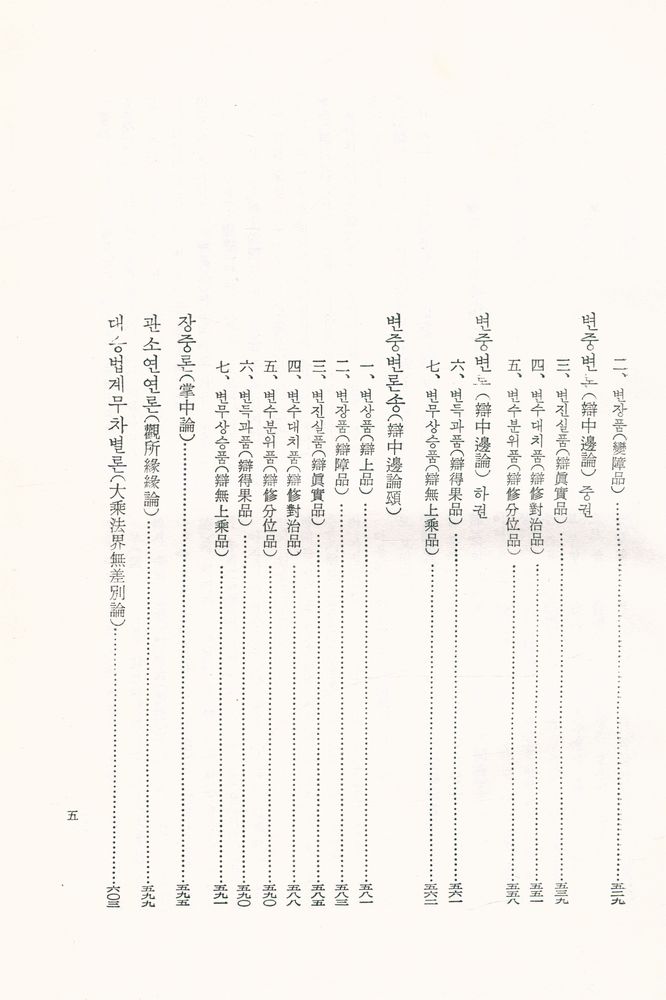 二、변장품(變障品)……五二九
변중변론(辯中邊論) 중권
三、변진실품(辯眞實品)……五三九
四、변수대치품(辯修對治品)……五五一
五、변수분위품(辯修分位品)……五五八
변중변론(辯中邊論) 하권
六、변득과품(辯得果品)……五六一
七、변무상승품(辯無上乘品)……五六二
변중변론송(辯中邊論頌)
一、변상품(辯上品)……五八一
二、변장품(辯障品)……五八三
三、변진실품(辯眞實品)……五八五
四、변수대치품(辯修對治品)……五八八
五、변수분위품(辯修分位品)……五九〇
六、변득과품(辯得果品)……五九〇
七、변무상승품(辯無上乘品)……五九一
장중론(掌中論)……五九五
관소연연론(觀所緣緣論)……五九九
대승법계무차별론(大乘法界無差別論)……六〇三
五